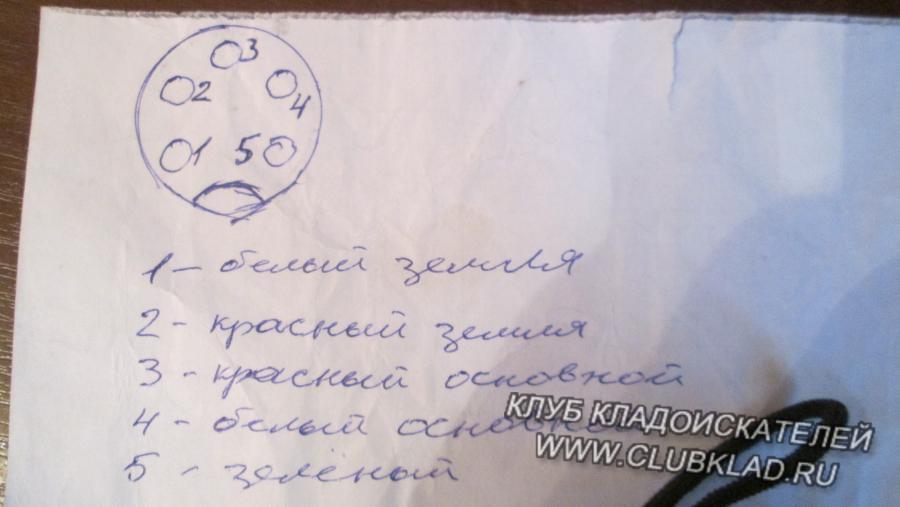 3
2
4
1 5
1 - белый земля
2 - красный земля
3 - красный основной
4 - белый
5 - зелёный
КЛУБ КЛАДОИСКАТЕЛЕЙ
WWW.CLUBKLAD.RU